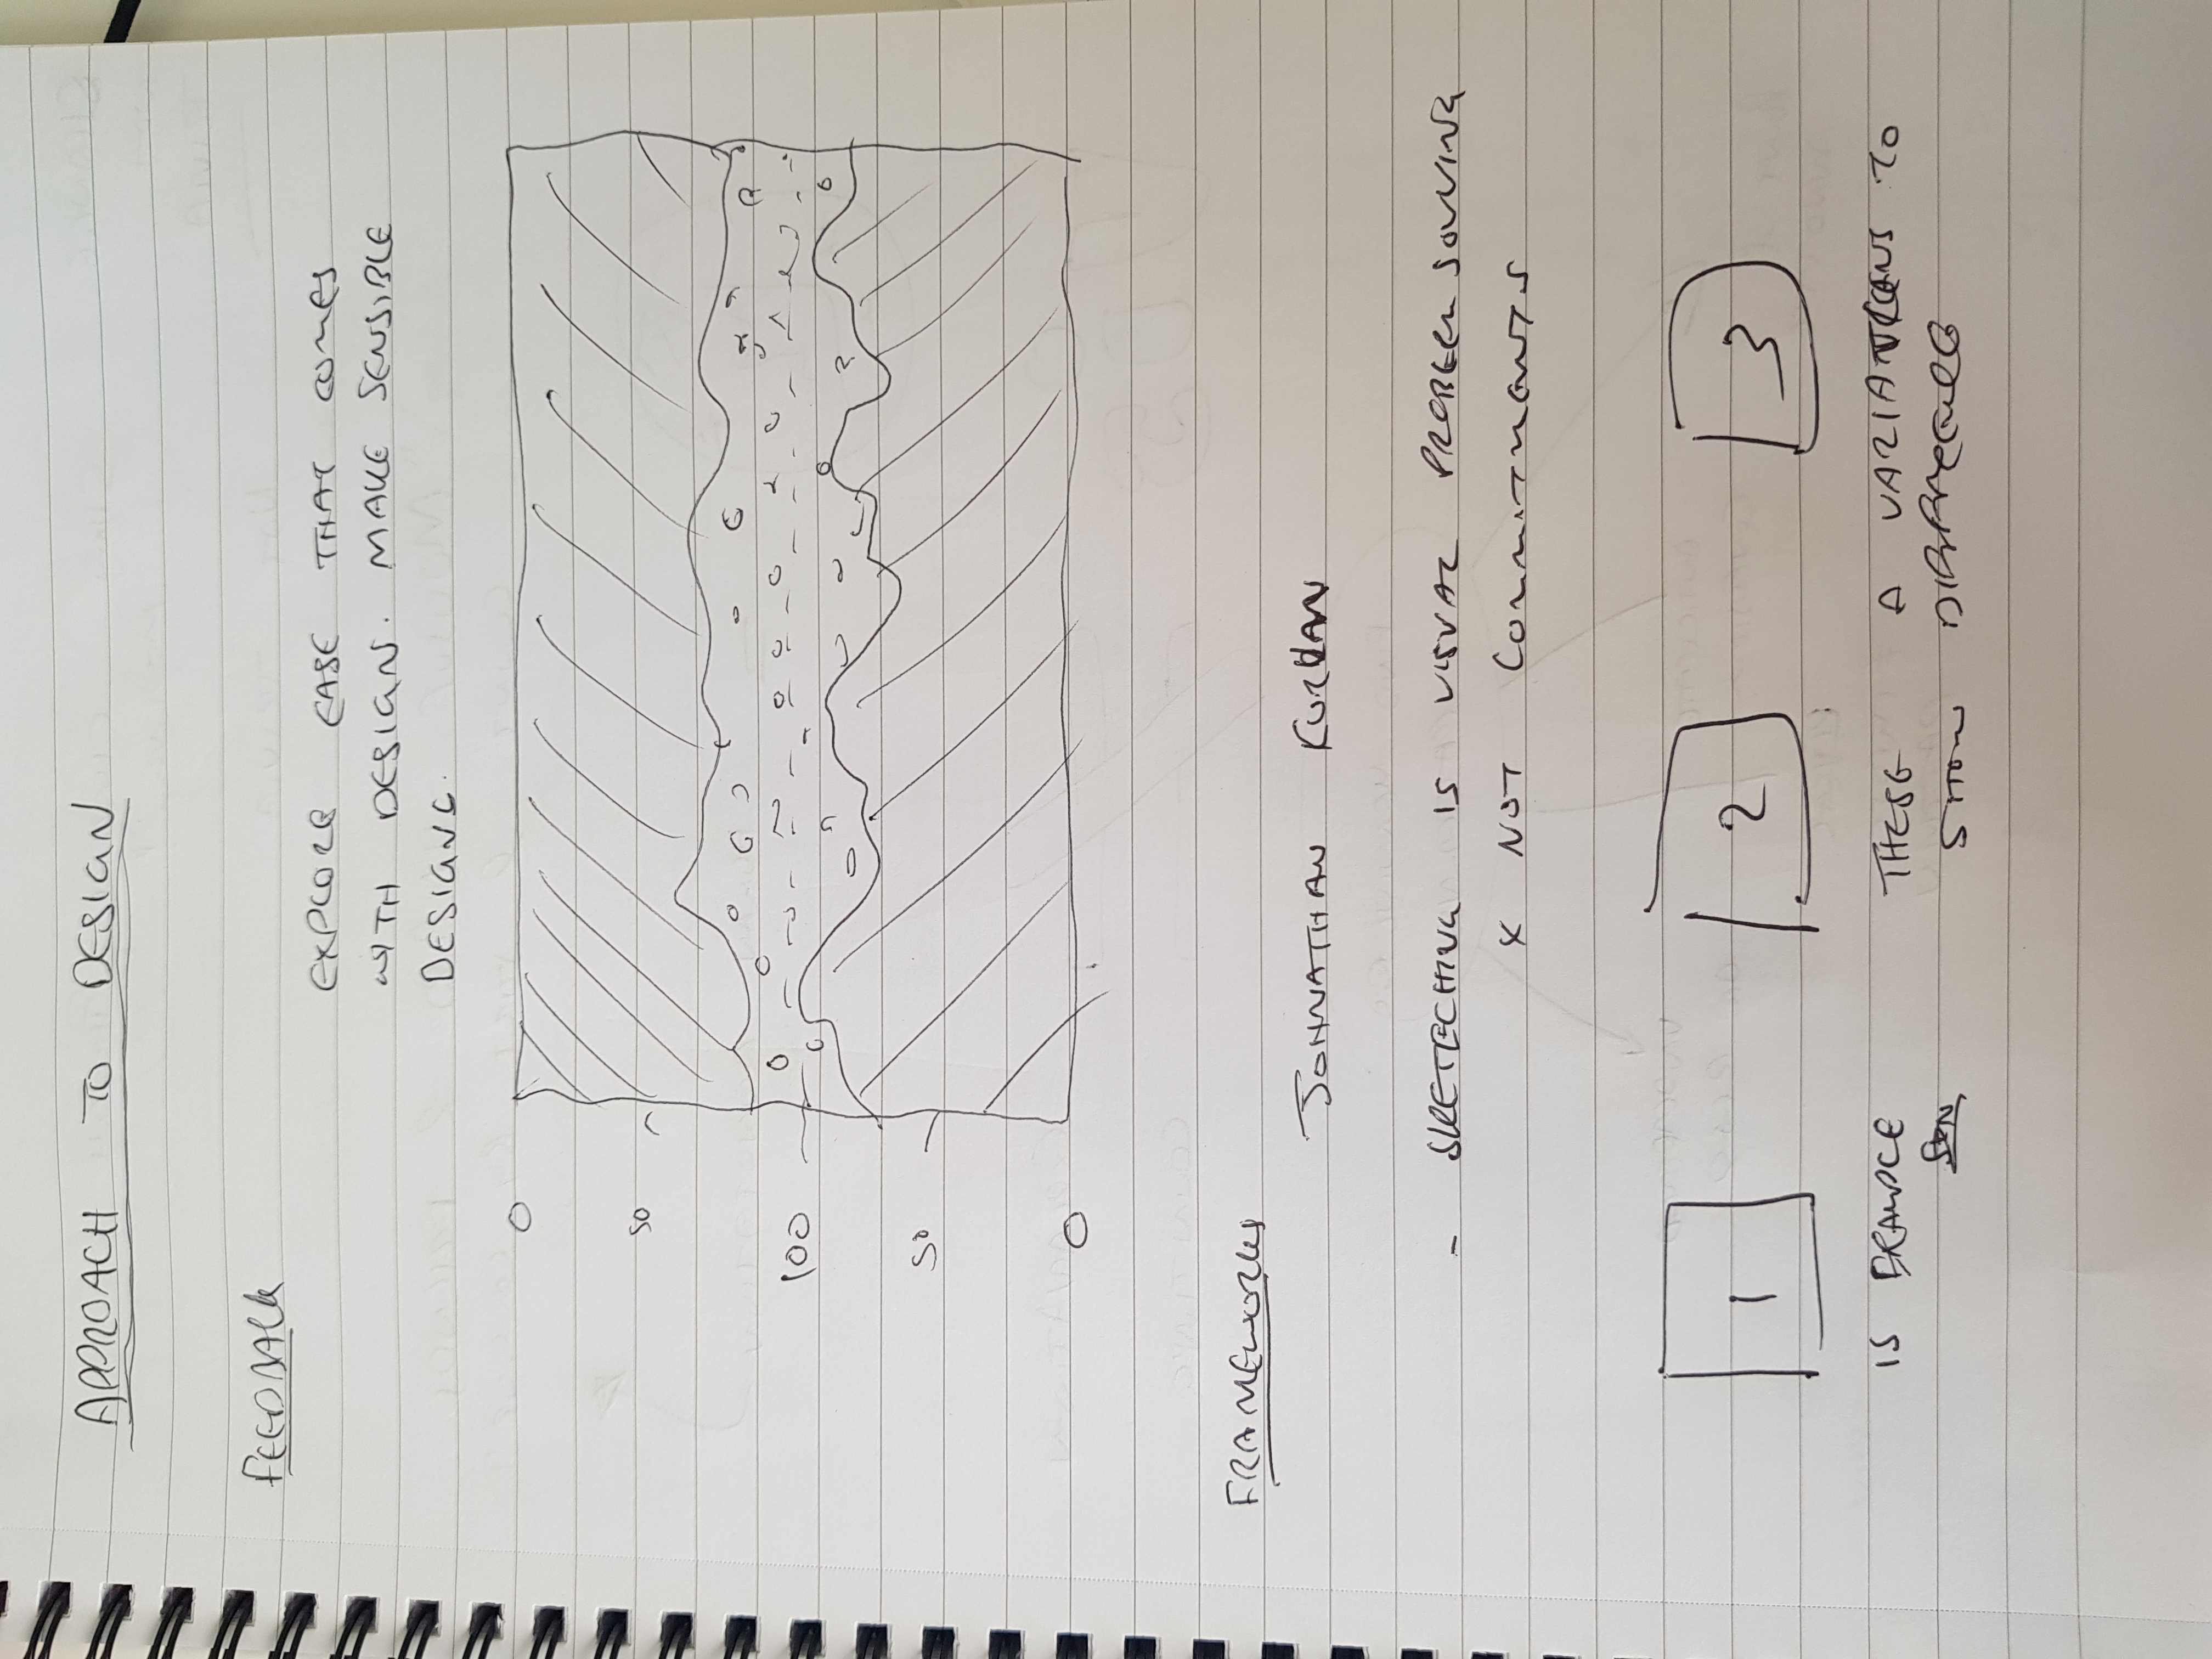 APPROACH TO DESIGN
FEEDBACK
EXPLORE EASE THAT COMES
WITH DESIGN. MAKE SENSIBLE
DESIGNS.
0
50
100
50
0
FRAMEWORKS
JOHNATHAN
- SKETECHING IS VISUAL PROBLEM SOLVING
x NOT COMMITMENTS
1 2 3
IS THESE A VARIATIONS TO
SHOW